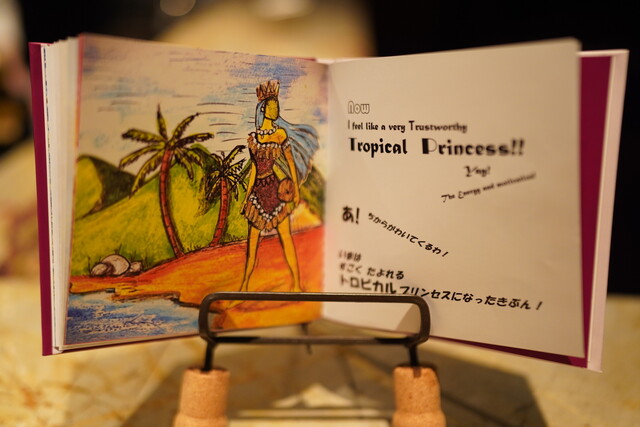 Now
I feel like a very Trustworthy
Tropical Princess!!
Yay!
The Energy and motivation!
あ! ちからがわいてくるわ!
いまは
すごく たよれる
トロピカル プリンセスになったきぶん!